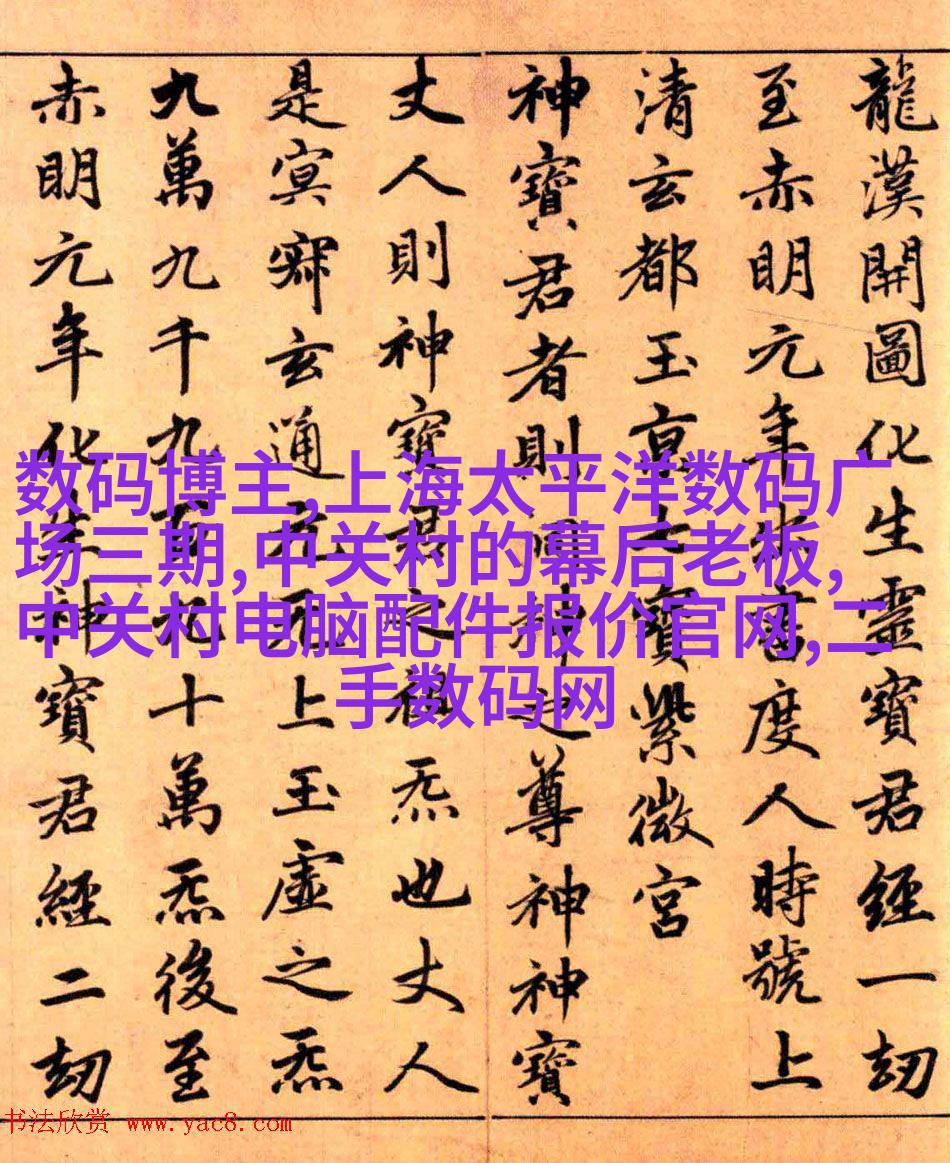 龍漢開圖化生靈寶君經一劫
至赤明元年出書度人時號上
清玄都玉京七寶紫微宮
神寶君者則洞神之尊神神寶
丈人則神寶君之祖炁也丈人
是冥寂玄通元无上玉虛之炁
九萬九千九百九十萬炁後至
赤明元年化生神寶君經二劫
数码博主,上海太平洋数码广
场三期,中关村的幕后老板,
中关村电脑配件报价官网,二
手数码网
书法欣赏 www.yac8.com